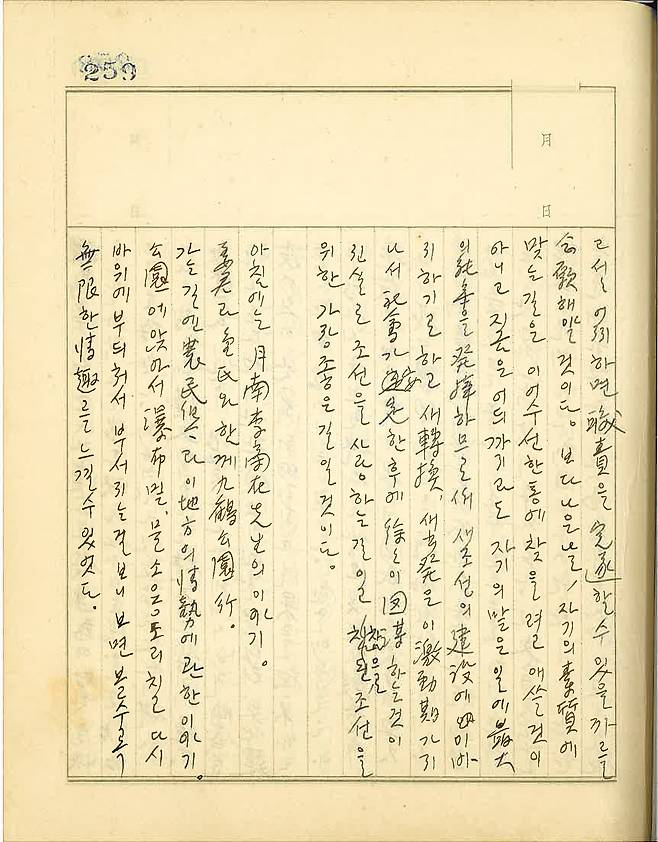 259
月
日
고서는 어찌하면 職責을 完遂할 수 있을까를
念願해야 할 것이다. 보다 나은 날, 자기의 素質에
맞는 길을 어수선한 통에 찾을려고 애쓸 것이
아니고 지금은 어듸까지라도 자기의 맡은 일에 最大
의 能率을 発揮하므로써 새 조선의 建設에 이바
지하기로 하고 새 轉換, 새 出発은 이 激動期가 지
나서 社會가 安定한 후에 徐々이 図謀하는 것이
진실로 조선을 사랑하는 길이요 참된 조선을
위한 가장 좋은 길일 것이다.
아침에는 月南 李商在 先生의 이야기.
姜君과 金氏와 함께 九鶴公園 行.
가는 길엔 農民組合과 이 地方의 情勢에 관한 이야기.
公園에 앉아서 瀑布 밑, 물소리 다시
바위에 부듸쳐서 부서지는 걸 보니 보면 볼수록
無限한 情趣를 느낄 수 있었다.